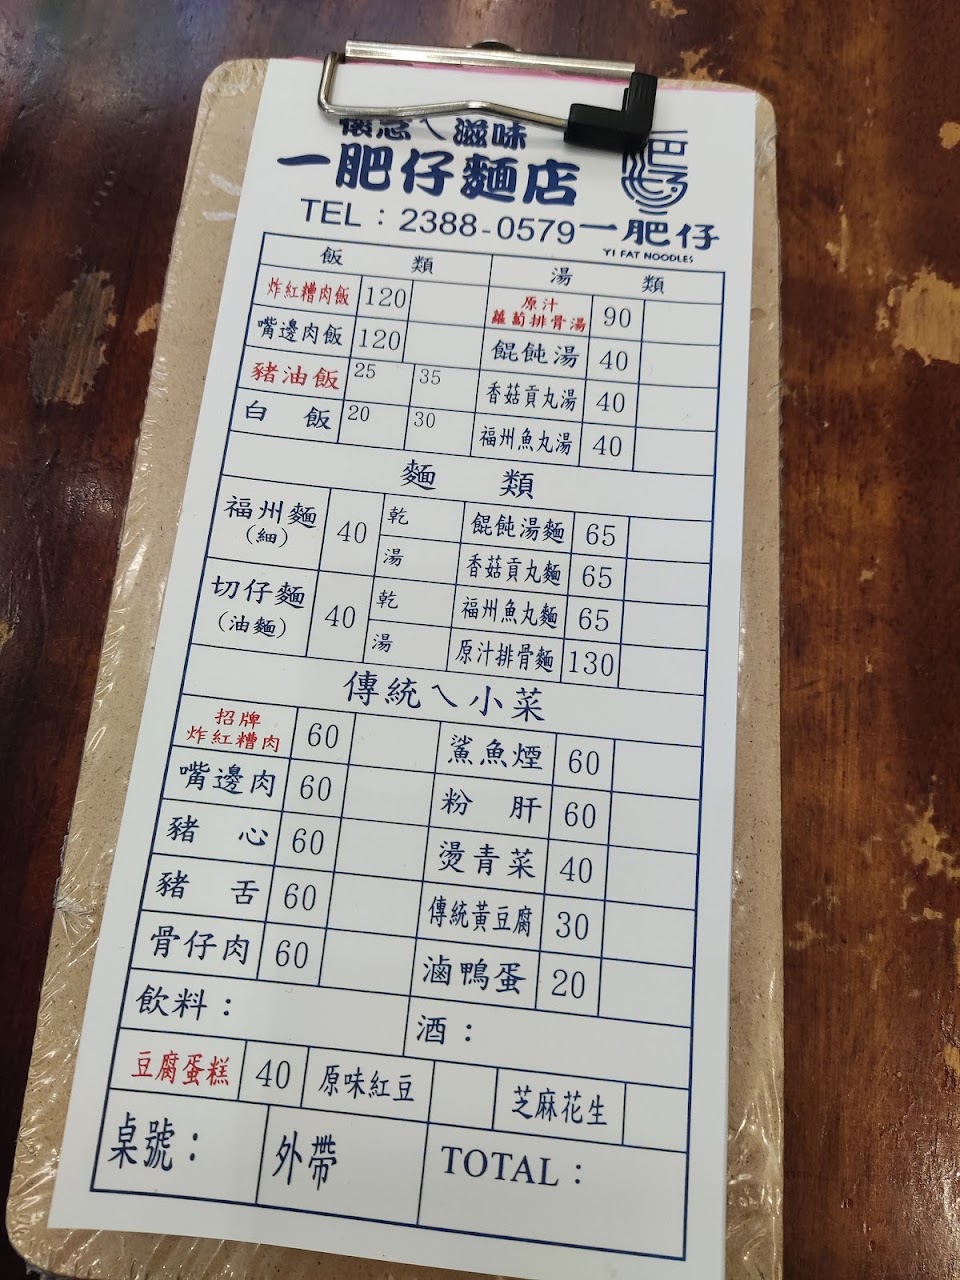 懷念ㄟ滋味
一肥仔麵店
TEL：2388-0579
一肥仔
YI FAT NOODLES
飯 類
湯 類
炸紅糟肉飯 120
原汁
蘿蔔排骨湯 90
嘴邊肉飯 120
餛飩湯 40
豬油飯 25 35
香菇貢丸湯 40
白 飯 20 30
福州魚丸湯 40
麵 類
福州麵
(細) 40 乾 湯
餛飩湯麵 65
香菇貢丸麵 65
切仔麵
(油麵) 40 乾 湯
福州魚丸麵 65
原汁排骨麵 130
傳統ㄟ小菜
招牌
炸紅糟肉 60
鯊魚煙 60
嘴邊肉 60
粉 肝 60
豬 心 60
燙青菜 40
豬 舌 60
傳統黃豆腐 30
骨仔肉 60
滷鴨蛋 20
飲料：
酒：
豆腐蛋糕 40 原味紅豆 芝麻花生
桌號： 外帶 TOTAL：